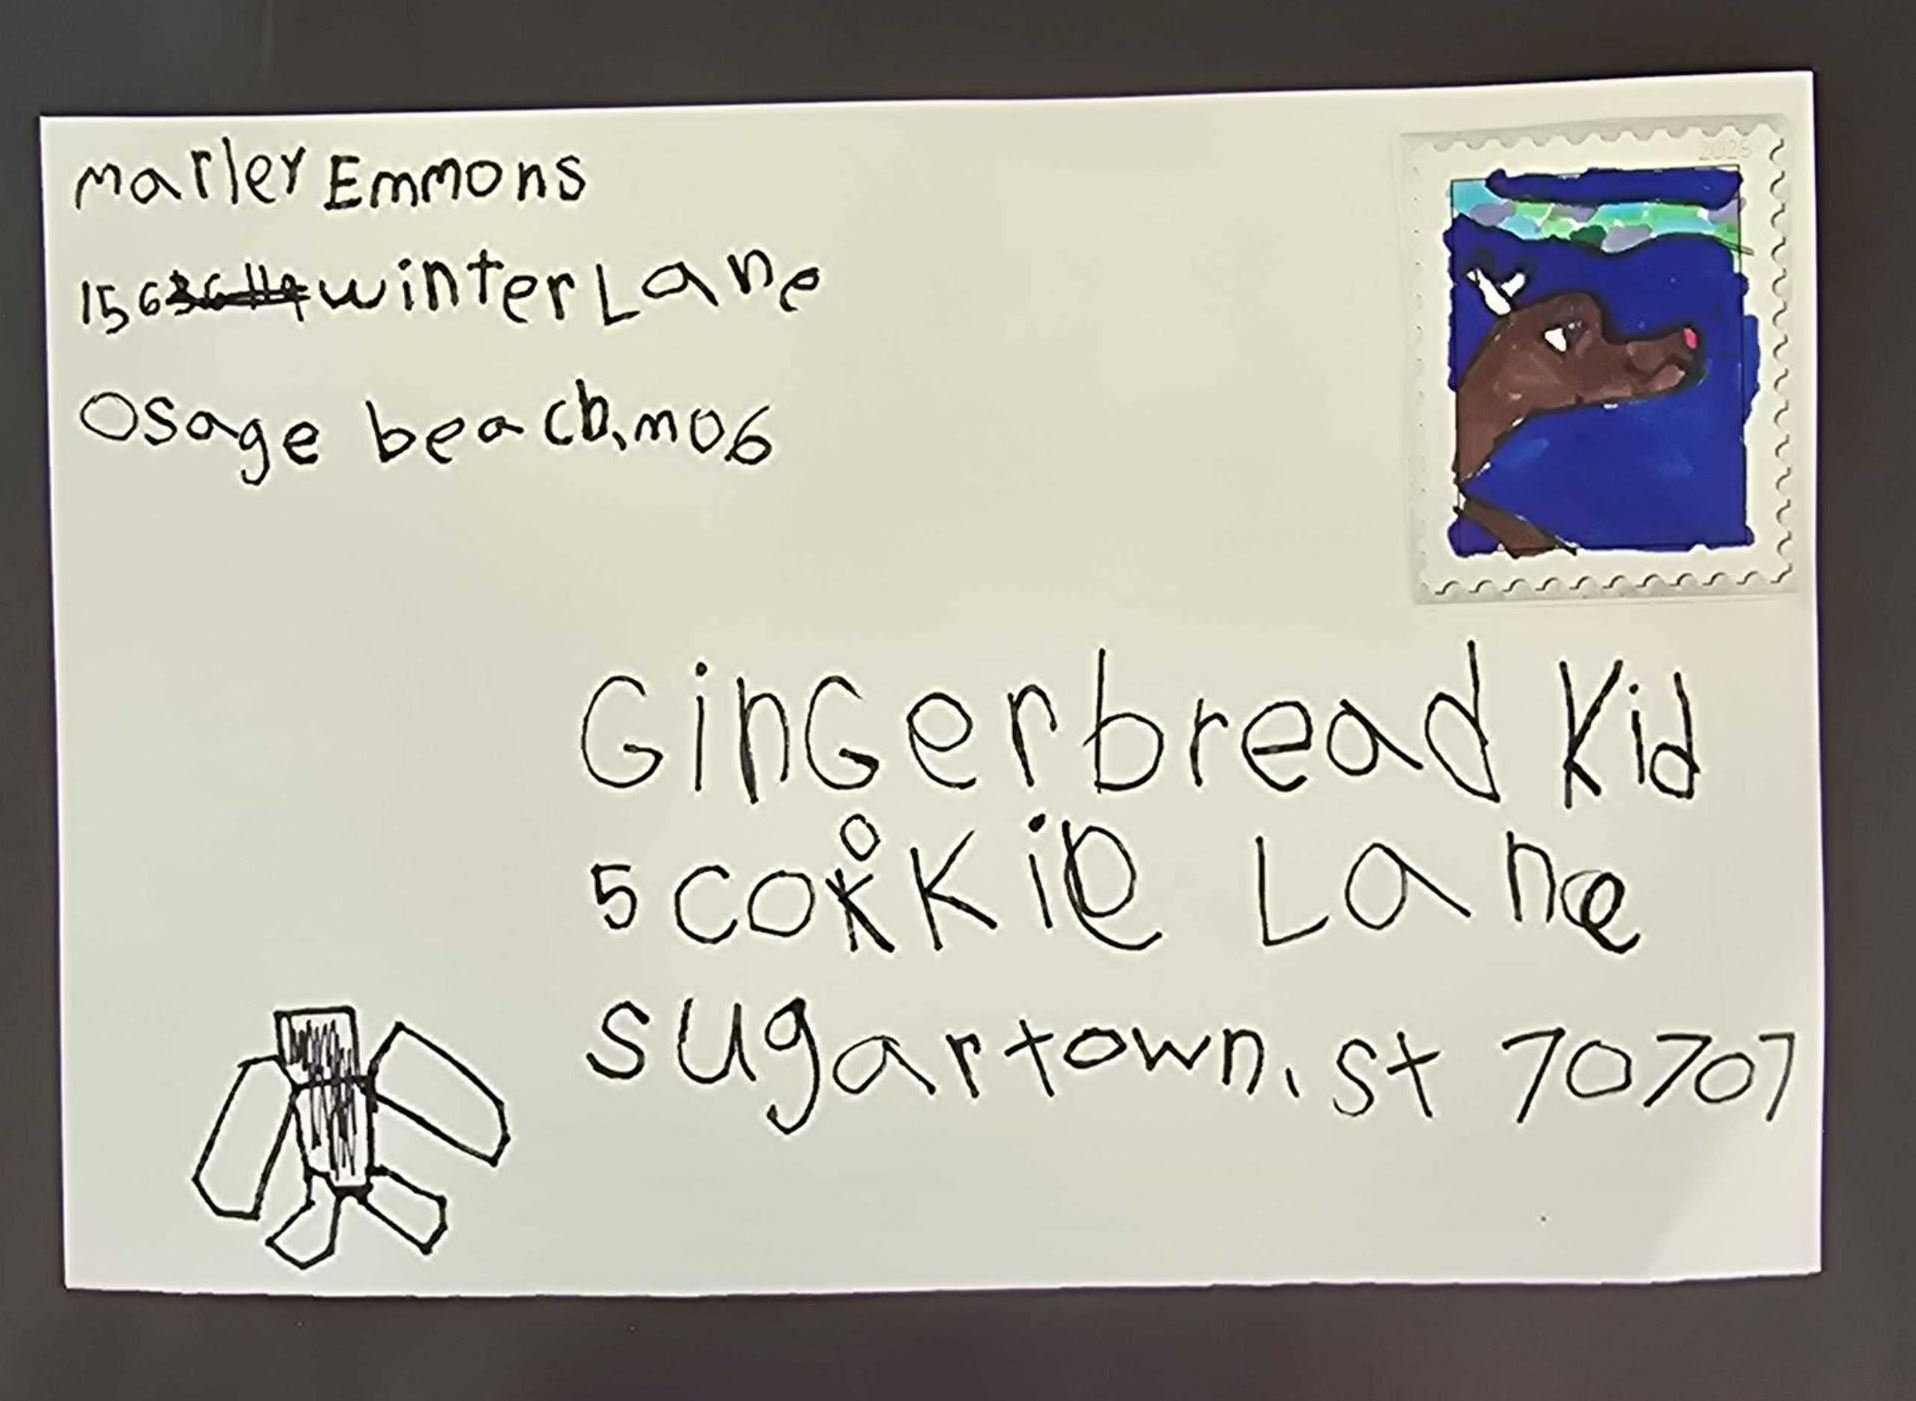 Marley Emmons
156 winter Lane
Osage beach, mo6
2025
GinGerbread Kid
5 cookie Lane
sugartown, st 70707